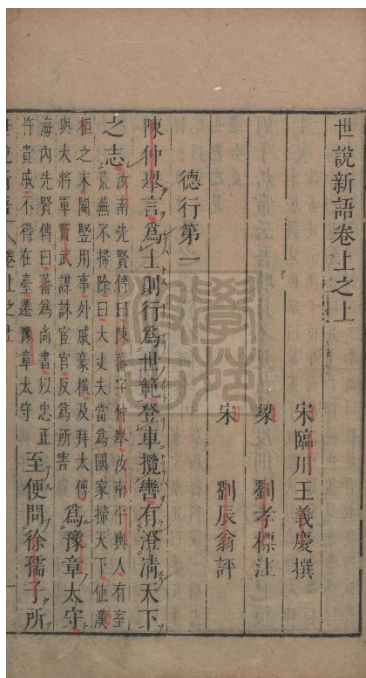 世說新語卷上之上
宋臨川王義慶撰
梁 劉孝標注
宋 劉辰翁評
德行第一
陳仲舉言為士則行為世範登車攬轡有澄清天下
之志
汝南先賢傳曰陳蕃字仲舉汝南平輿人有室
荒蕪不掃除曰大丈夫當為國家掃天下值漢
桓之末閹豎用事外戚豪橫及拜太傅
與大將軍竇武謀誅宦官反為所害
為豫章太守
海內先賢傳曰蕃為尚書以忠正
忤貴戚不得在臺遷豫章太守
至便問徐孺子所
世說新語
卷上之上